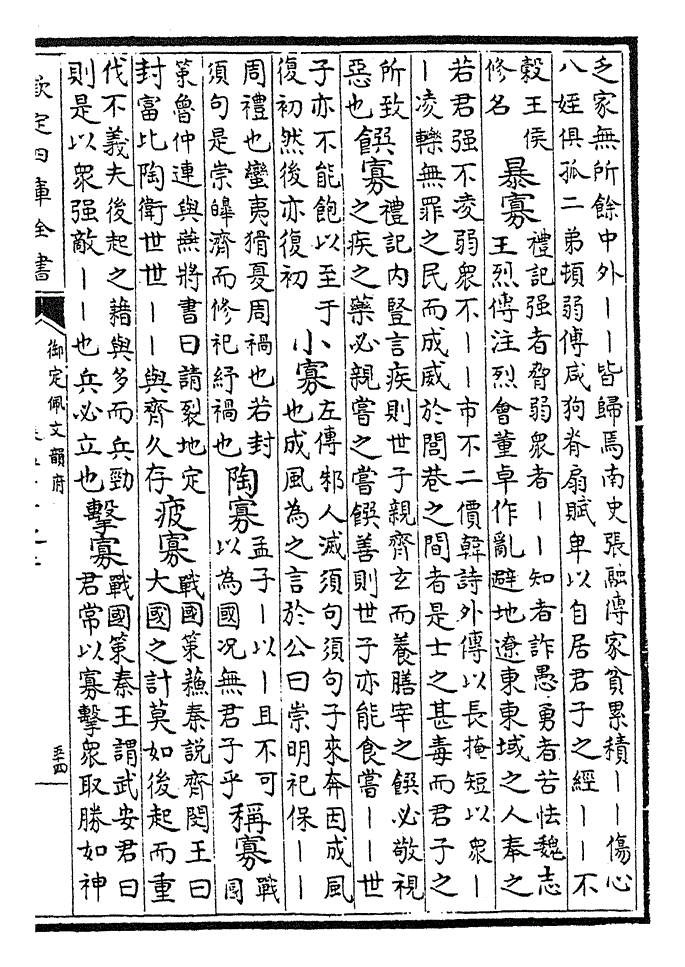 乏家無所餘中外——皆歸焉南史張融傳家貧累積——傷心
八姪俱孤二弟頓弱傅咸狗脊扇賦卑以自居君子之經——不
榖王侯
修名
暴寡
禮記强者脅弱衆者——知者詐愚勇者苦怯魏志
王烈傳注烈會董卓作亂避地遼東東域之人奉之
若君强不凌弱衆不——市不二價韓詩外傳以長掩短以衆—
—凌轢無罪之民而成威於閭巷之間者是士之甚毒而君子之
所致
惡也
饌寡
禮記内豎言疾則世子親齊玄而養膳宰之饌必敬視
之疾之藥必親嘗之嘗饌善則世子亦能食嘗——世
子亦不能飽以至于
復初然後亦復初
小寡
左傳邾人滅須句須句子來奔因成風
也成風為之言於公曰崇明祀保——
周禮也蠻夷猾憂周禍也若封
須句是崇皡濟而修祀紓禍也
陶寡
孟子—以—且不可
以為國况無君子乎
稱寡
戰
國
策魯仲連與燕將書曰請裂地定
封富比陶衛世世——與齊久存
疲寡
戰國策蘇秦説齊閔王曰
大國之計莫如後起而重
伐不義夫後起之藉與多而兵勁
則是以衆强敵——也兵必立也
擊寡
戰國策秦王謂武安君曰
君常以寡擊衆取勝如神
欽定四庫全書
御定佩文韻府
五十四